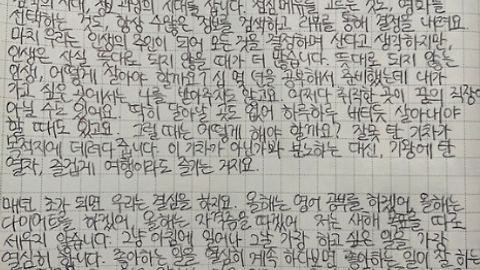 검색의 시대, 선택 과정의 시대를 삽니다. 점심메뉴를 고르는 것도, 영화를
선택하는 것도, 항상 수많은 정보를 검색하고 리뷰를 통해 결정을 내려요.
마치 우리는 인생의 주인이 되어 모든 것을 결정하며 산다고 생각하지만,
인생은 사실 뜻대로 되지 않을 때가 더 많습니다. 뜻대로 되지 않는
인생, 어떻게 살아야 할까요? 십 몇 년을 공부해서 준비했는데 내가
가고 싶은 곳에서는 나를 받아주지도 않고요. 어쩌다 취직한 곳이 꿈의 직장이
아닐 수도 있어요. 딱히 달아날 곳도 없어 하루하루 버티듯 살아내야
할 때도 있고요. 그럴 때는 어떻게 해야 할까요? 잘못 탄 기차가
목적지에 데려다 줍니다. 이 기차가 아닌가봐 분노하는 대신, 기왕에 탄
열차, 즐겁게 여행이라도 즐기는 거지요.
매년 초가 되면 우리는 결심을 하지요. 올해는 영어 공부를 하겠어, 올해는
다이어트를 하겠어, 올해는 자격증을 따겠어. 저는 새해 목표를 따로
세우지 않습니다. 그냥 아침에 일어나 그날 가장 하고 싶은 일을 가장
열심히 합니다. 좋아하는 일을 열심히 계속 하다보면, 좋아하는 일이 잘 하는